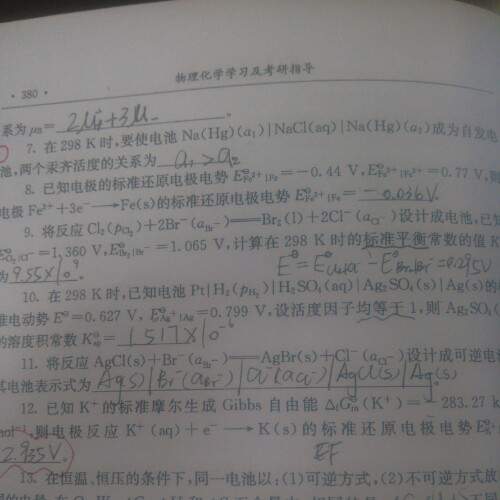 物理化学学习及考研指导
· 380 ·
系为 μB= 2μ+ + 3μ- 。
7. 在 298 K 时,要使电池 Na(Hg)(a₁)|NaCl(aq)|Na(Hg)(a₂)成为自发电
池,两个汞齐活度的关系为 a₁ > a₂
8. 已知电极的标准还原电极电势 E⊖Fe²⁺|Fe=−0.44 V, E⊖Fe³⁺|Fe²⁺=0.77 V,则
电极 Fe³⁺+3e⁻⟶Fe(s)的标准还原电极电势 E⊖Fe³⁺|Fe= −0.036V.
9. 将反应 Cl₂(pCl₂)+2Br⁻(aBr⁻)══Br₂(l)+2Cl⁻(aCl⁻)设计成电池,已知
E⊖Cl₂|Cl⁻=1.360 V, E⊖Br₂|Br⁻=1.065 V,计算在 298 K 时的标准平衡常数的值 K
为 9.55×10⁹
E⊖=E⊖Cl₂|Cl⁻−E⊖Br₂|Br⁻=0.295V
10. 在 298 K 时,已知电池 Pt|H₂(pH₂)|H₂SO₄(aq)|Ag₂SO₄(s)|Ag(s)的
准电动势 E⊖=0.627 V, E⊖Ag⁺|Ag=0.799 V,设活度因子均等于 1,则 Ag₂SO₄(
的溶度积常数 K⊖sp= 1.517×10⁻⁶
11. 将反应 AgCl(s)+Br⁻(aBr⁻)══AgBr(s)+Cl⁻(aCl⁻)设计成可逆电
其电池表示式为 Ag(s)|Br⁻(aBr⁻)|Cl⁻(aCl⁻)|AgCl(s)|Ag(s)
12. 已知 K⁺ 的标准摩尔生成 Gibbs 自由能 ΔfG⊖m(K⁺)=−283.27 k
mol⁻¹,则电极反应 K⁺(aq)+e⁻⟶K(s)的标准还原电极电势 E⊖
2.935V.
EF
13. 在恒温、恒压的条件下,同一电池以:(1)可逆方式,(2)不可逆方式放